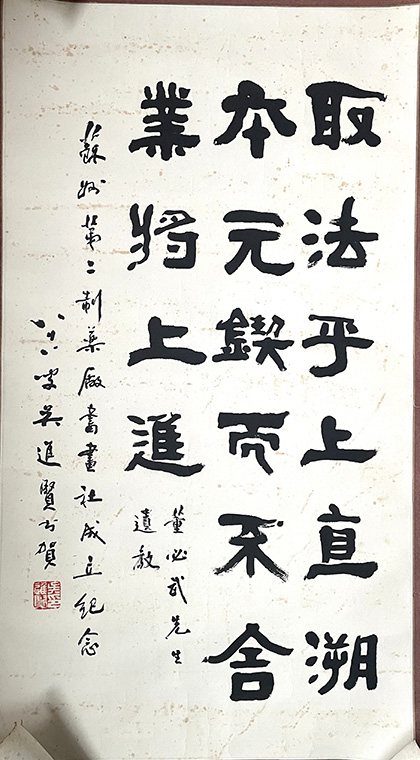 取法乎上直溯
本元鍥而不舍
業将上進
董必武先生
遺教
蘇州第二制藥厰書畫社成立紀念
叟吴進賢书賀